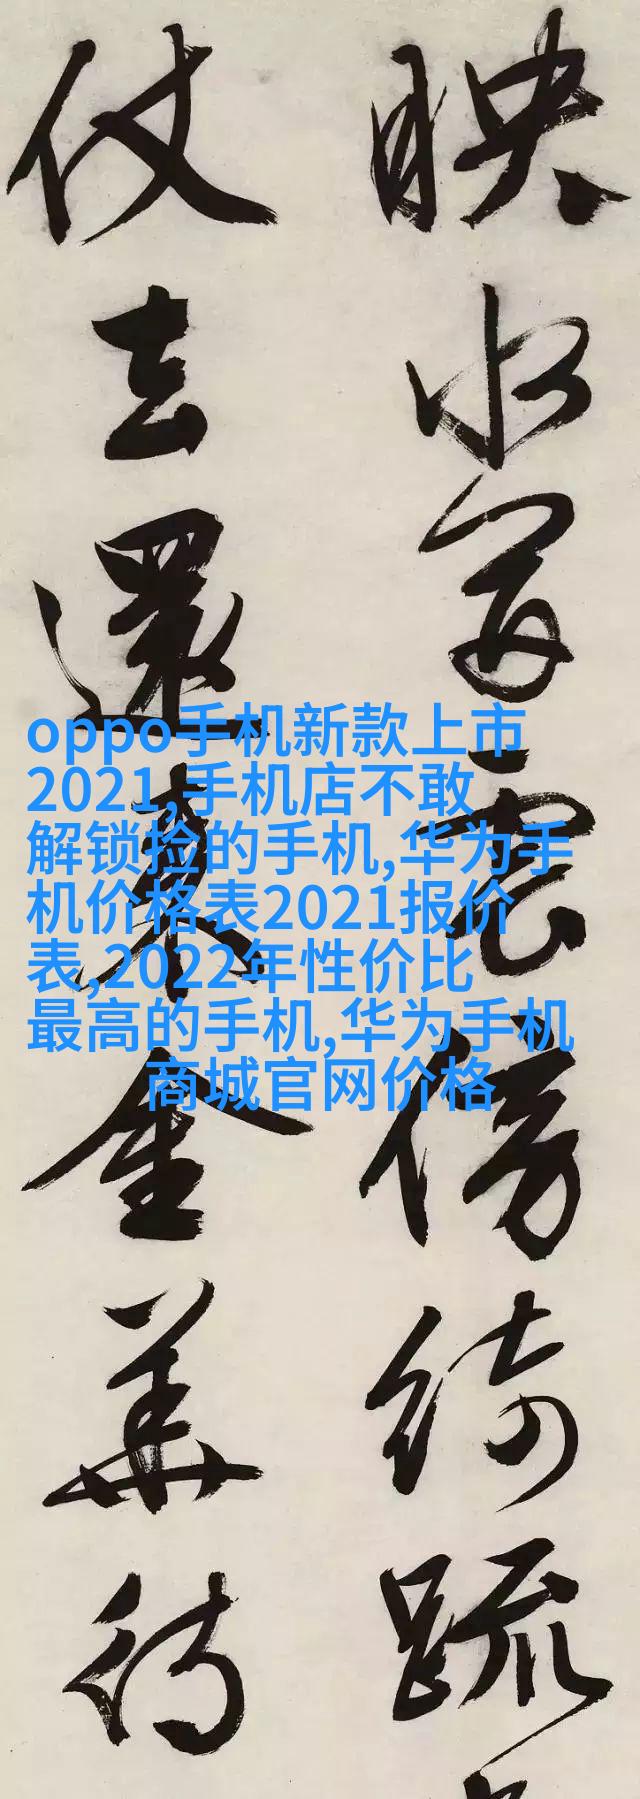 映水雲傍綺疏
仗去還來金華待
oppo手机新款上市
2021,手机店不敢
解锁捡的手机,华为手
机价格表2021报价
表,2022年性价比
最高的手机,华为手机
商城官网价格